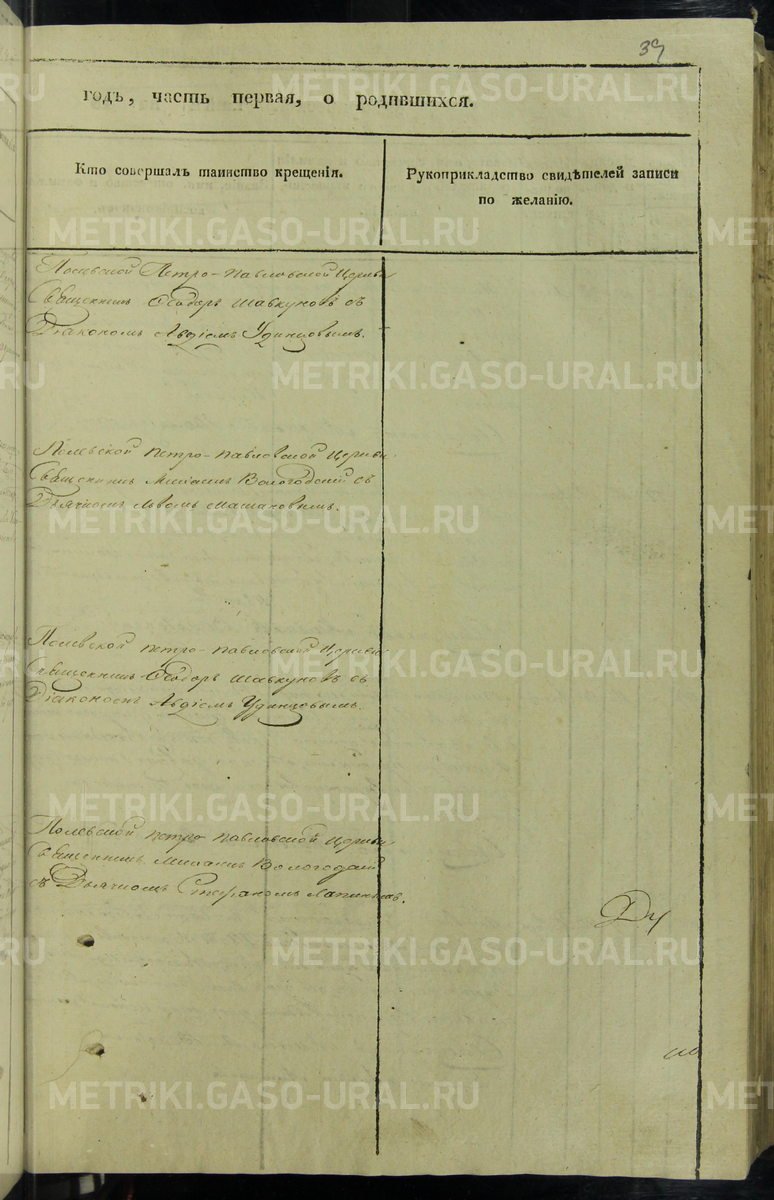 39
годъ, часть первая, о родившихся.
Кто совершалъ таинство крещенія.
Рукоприкладство свидѣтелей записи
по желанію.
Полевской Петро-Павловской Церкви
Священникъ Ѳеодоръ Шавкуновъ съ
Діакономъ Авдіемъ Удинцовымъ.
Полевской Петро-Павловской Церкви
Священникъ Михаилъ Вологодскій съ
Дьячкомъ Львомъ
Полевской Петро-Павловской Церкви
Священникъ Ѳеодоръ Шавкуновъ съ
Діакономъ Авдіемъ Удинцовымъ.
Полевской Петро-Павловской Церкви
Священникъ Михаилъ Вологодскій
съ Дьячкомъ Стефаномъ
METRIKI.GASO-URAL.RU